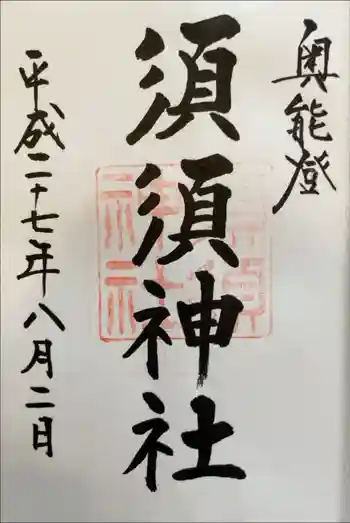 奥能登
須須神社
平成二十七年八月二日